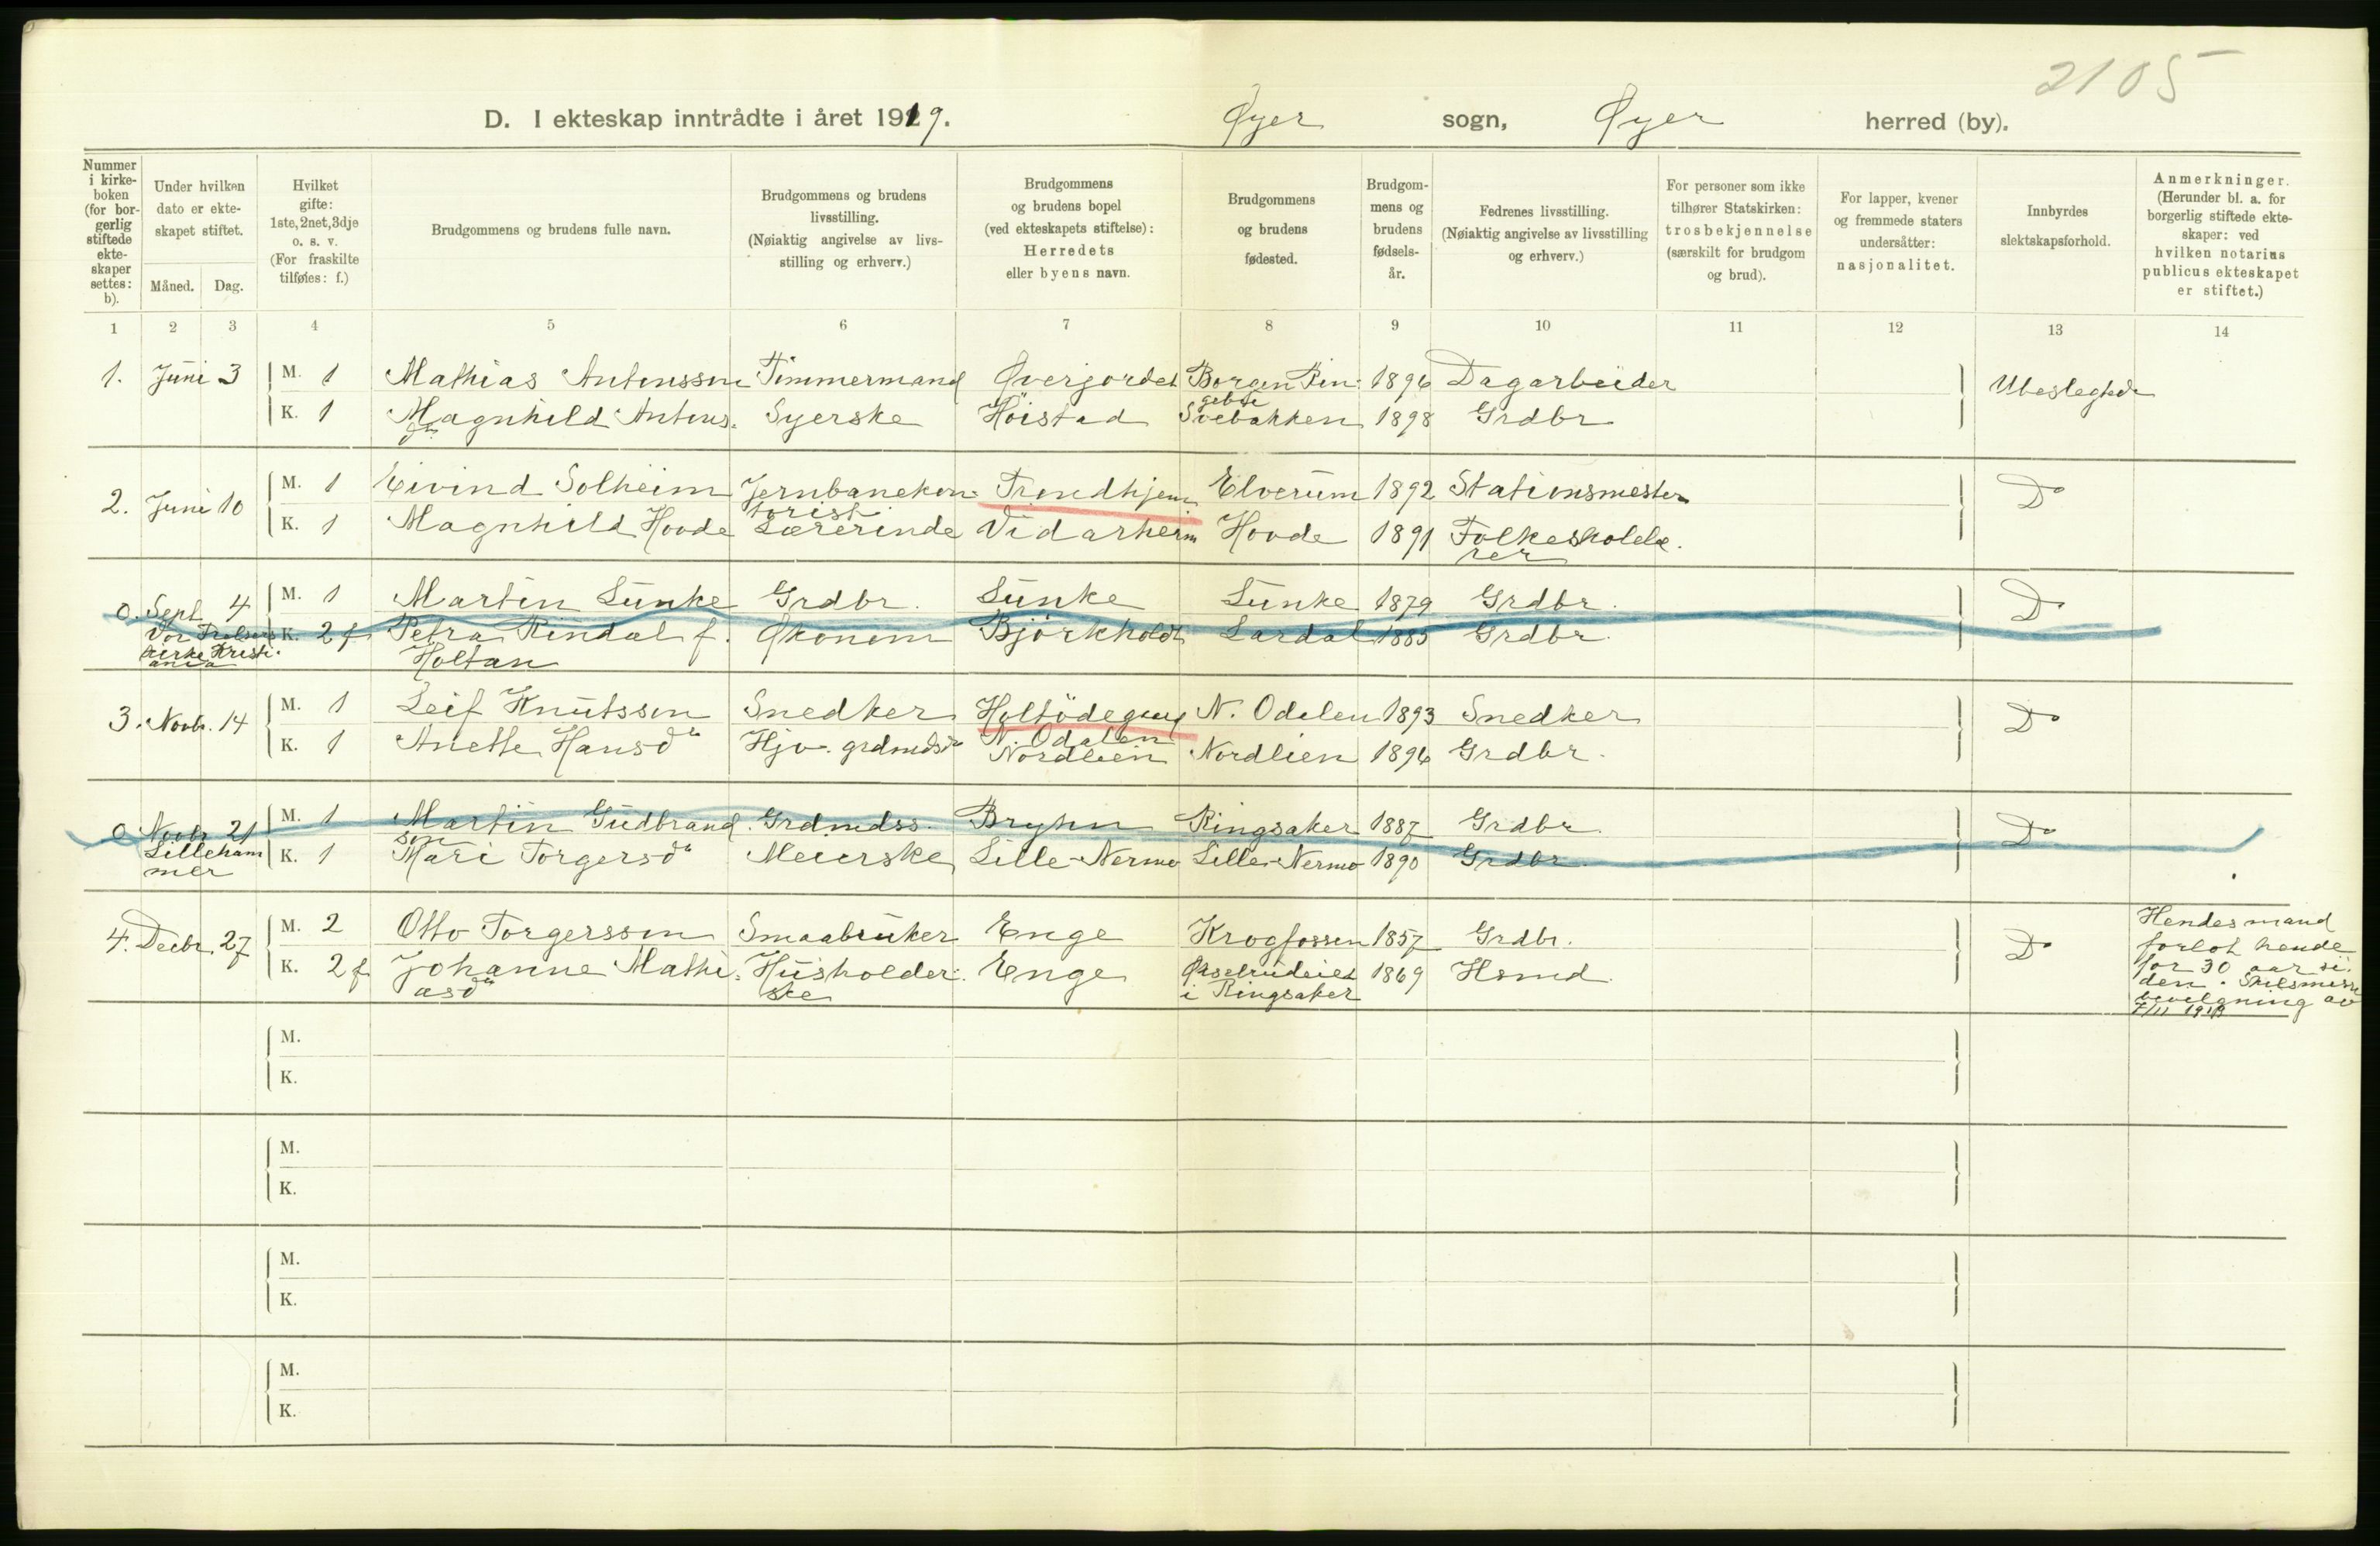 2105
D. I ekteskap inntrådte i året 1919. Øyer sogn, Øyer herred (by).
Nummer i kirke-boken (for bor-gerlig stiftede ekte-skaper settes: b).
Under hvilken dato er ekte-skapet stiftet.
Måned. Dag.
Hvilket gifte: 1ste, 2net, 3dje o. s. v. (For fraskilte tilføies: f.)
Brudgommens og brudens fulle navn.
Brudgommens og brudens livsstilling. (Nøiaktig angivelse av livs-stilling og erhverv.)
Brudgommens og brudens bopel (ved ekteskapets stiftelse): Herredets eller byens navn.
Brudgommens og brudens fødested.
Brudgom-mens og brudens fødsels-år.
Fedrenes livsstilling. (Nøiaktig angivelse av livsstilling og erhverv.)
For personer som ikke tilhører Statskirken: trosbekjennelse (særskilt for brudgom og brud).
For lapper, kvener og fremmede staters undersåtter: nasjonalitet.
Innbyrdes slektskapsforhold.
Anmerkninger. (Herunder bl. a. for borgerlig stiftede ekte-skaper: ved hvilken notarius publicus ekteskapet er stiftet.)
1 2 3 4 5 6 7 8 9 10 11 12 13 14
1. Juni 3 M. 1 Mathias Antonsson Timmermand Överjordet Borgen Rin- 1896 Dagarbeider Ubeslegtede
gebu
K. 1 Magnhild Antons- Syerske Höistad Svebakken 1898 Grdbr
dr
2. Juni 10 M. 1 Eivind Solheim Jernbanekon- Trondhjem Elverum 1892 Stationsmester Do
torist
K. 1 Magnhild Hovde Lærerinde Vidarheim Hovde 1891 Folkeskolelæ-
rer
0. Sept. 4 M. 1 Martin Lunke Grdbr. Lunke Lunke 1879 Grdbr. Do
Vor Frelsers K. 2 f Petra Rindal f. Økonom Björkholdt Lardal 1885 Grdbr.
kirke Kristi-
ania Holtan
3. Novbr. 14 M. 1 Leif Knutsson Snedker Holtödegaard N. Odalen 1893 Snedker Do
N. Odalen
K. 1 Anette Hansdr Hjv. grdmdsdr Nordlien Nordlien 1896 Grdbr.
0 Novbr 21 M. 1 Martin Gudbrand- Grdmdss. Bryhn Ringsaker 1887 Grdbr. Do
son
Lilleham K. 1 Mari Torgersdr Meierske Lille-Nermo Lille-Nermo 1890 Grdbr.
mer
4. Decbr. 27 M. 2 Otto Torgersson Smaabruker Enge Krogfossen 1857 Grdbr. Do
K. 2 f Johanne Mathi- Husholder- Enge 1869 Hsmd.
asdr ske i Ringsaker
Hendes mand
forlot hende
for 30 aar si-
den. Skilsmisse
bevilgning av
7/11 1919
M.
K.
M.
K.
M.
K.
M.
K.